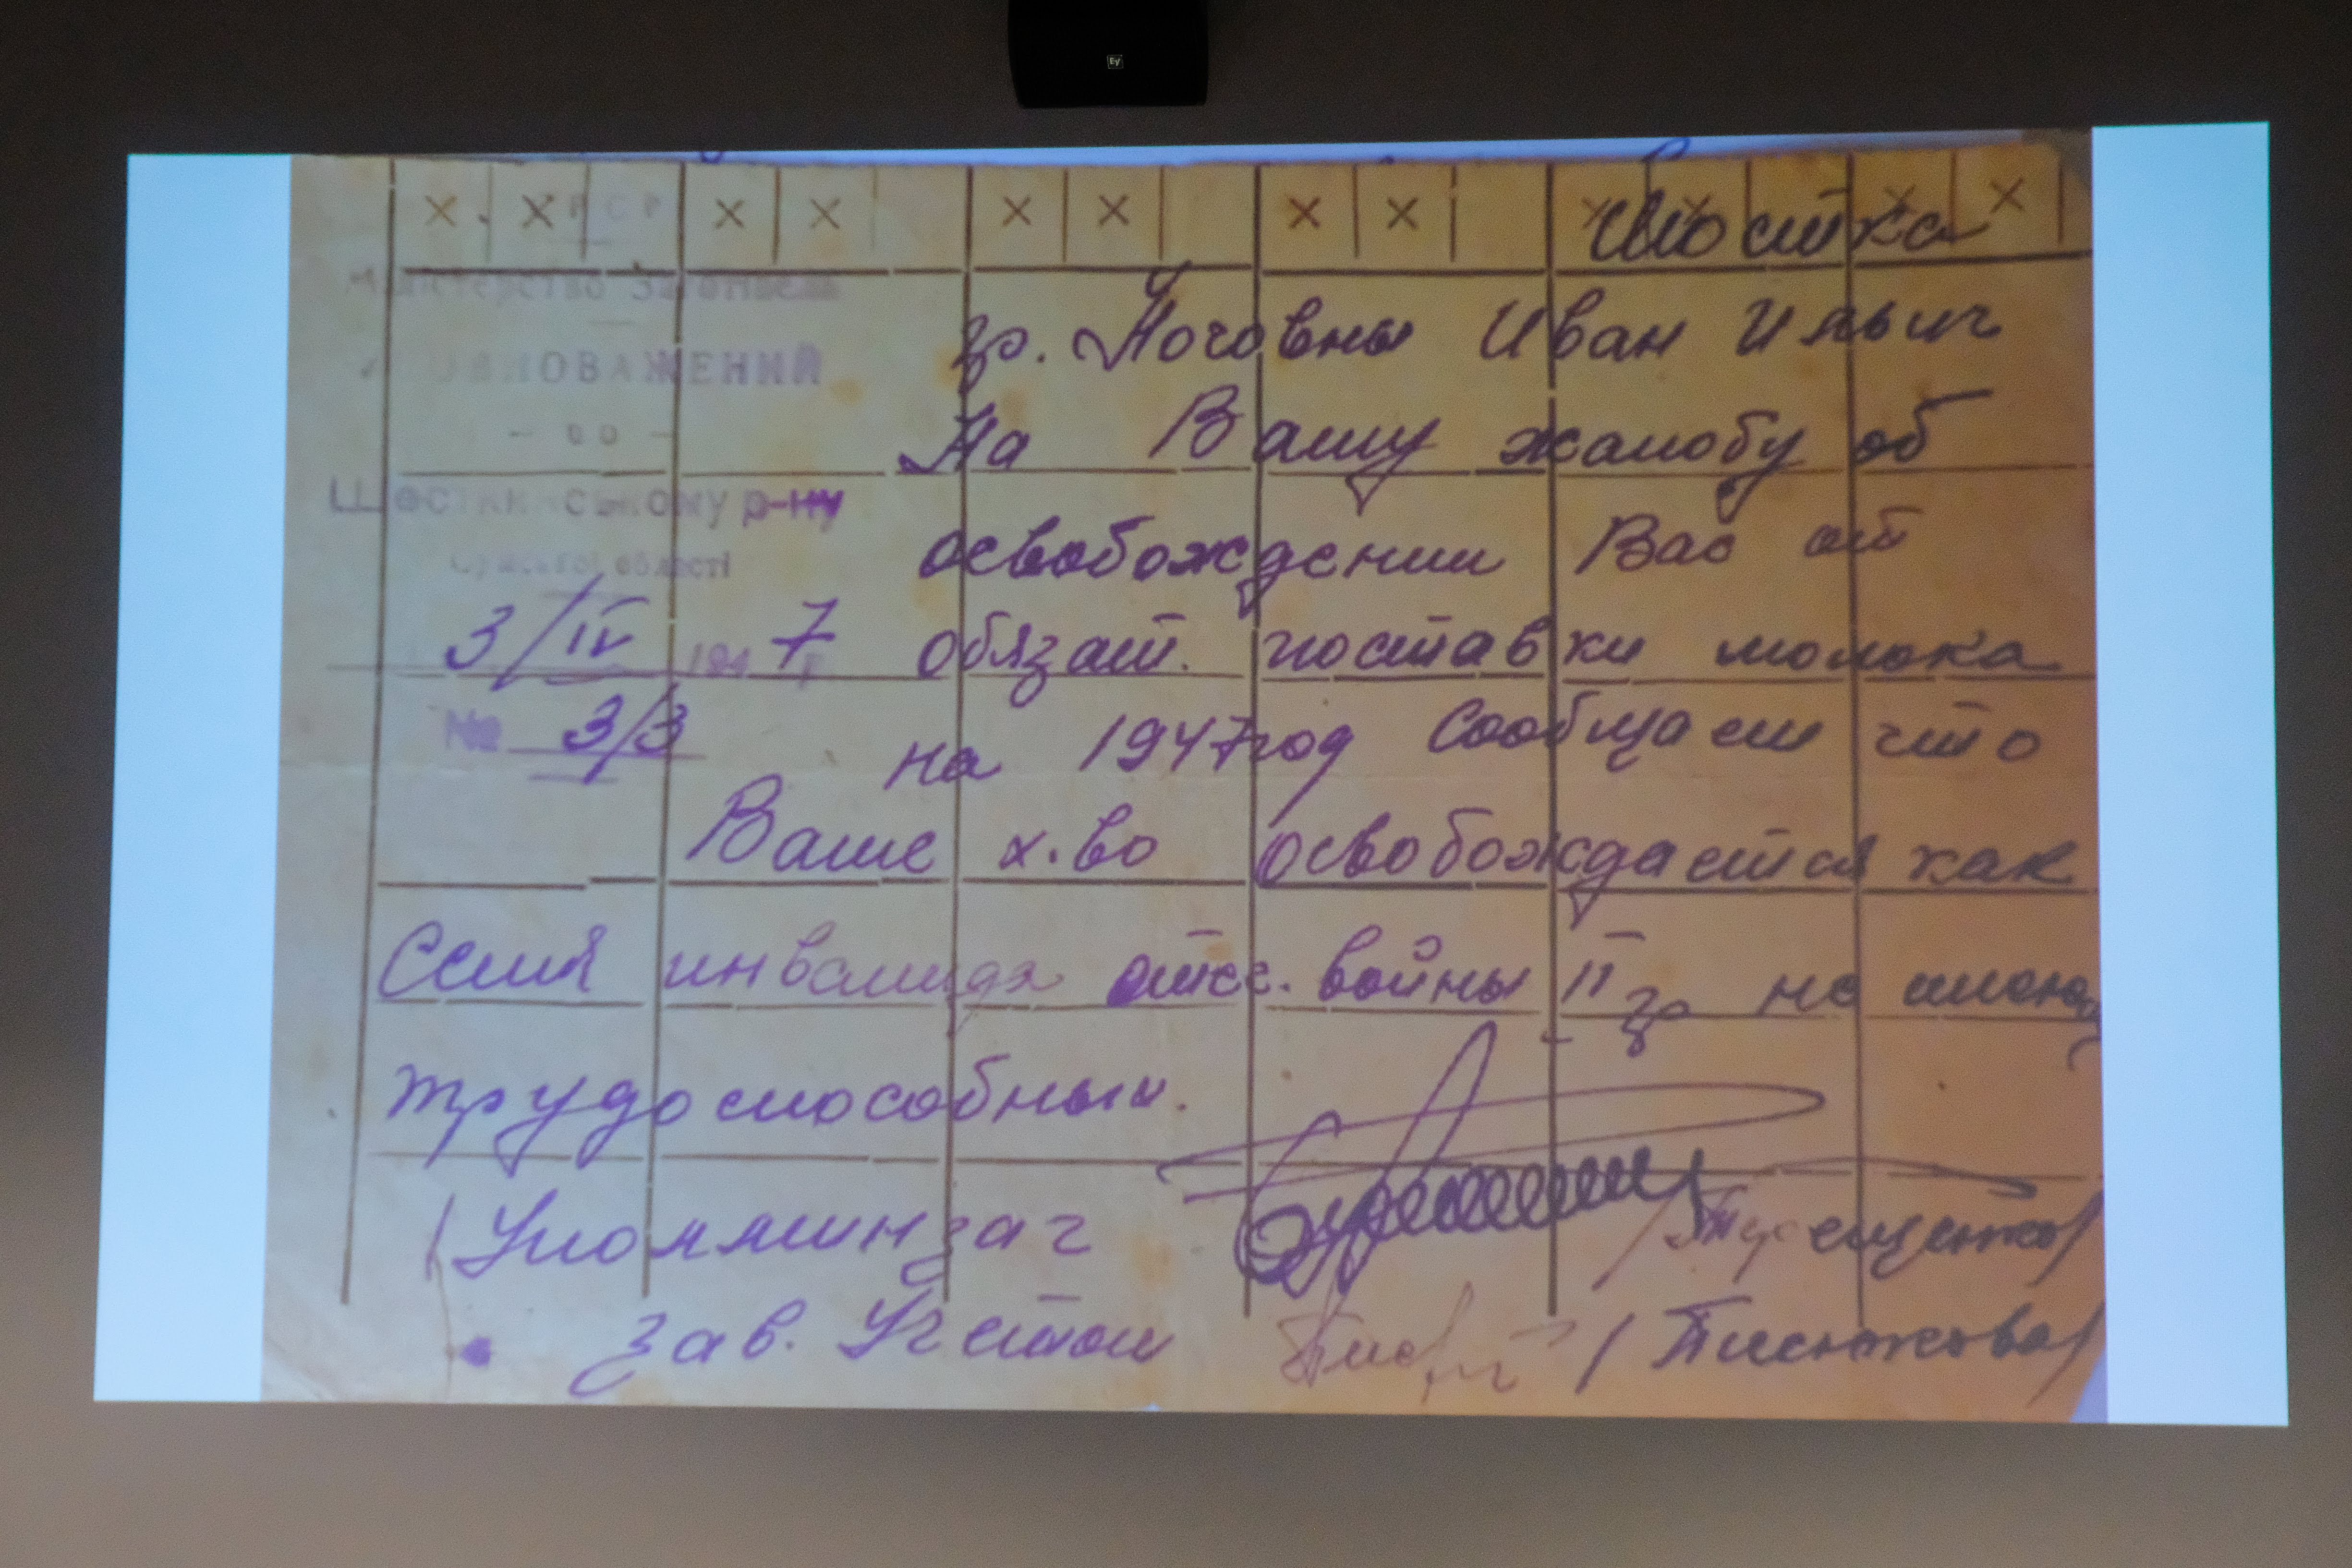 Ey
УРСР
Шостка
Міністерство Заготівель
гр. Почовны Иван Ильич
УПОВНОВАЖЕНИЙ
На Вашу жалобу об
- по -
Шосткинському р-ну
освобождении Вас от
Сумської області
3/IV 1947 р
обязат. поставки молока
№ 3/3
на 1947 год Сообщаем что
Ваше х-во освобождается как
Семя инвалида отеч. войны II гр не имеющ
трудоспособных.
(Уполмминзаг
Зав. Учетом